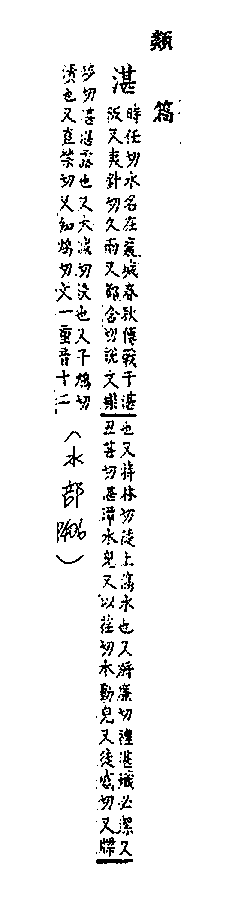 類篇
湛 時任切水名在襄城春秋傳戰于湛
阪又夷針切久雨又都含切說文樂
也又將林切徒上濠水也又將廉切漬湛熾必潔又
丑甚切甚潭水皃又以荏切水動皃又徒感切又牒
切湛湛露也又大減切沒也又子鴆切
漬也又直禁切又知鴆切文一重音十二
(水部 P406)